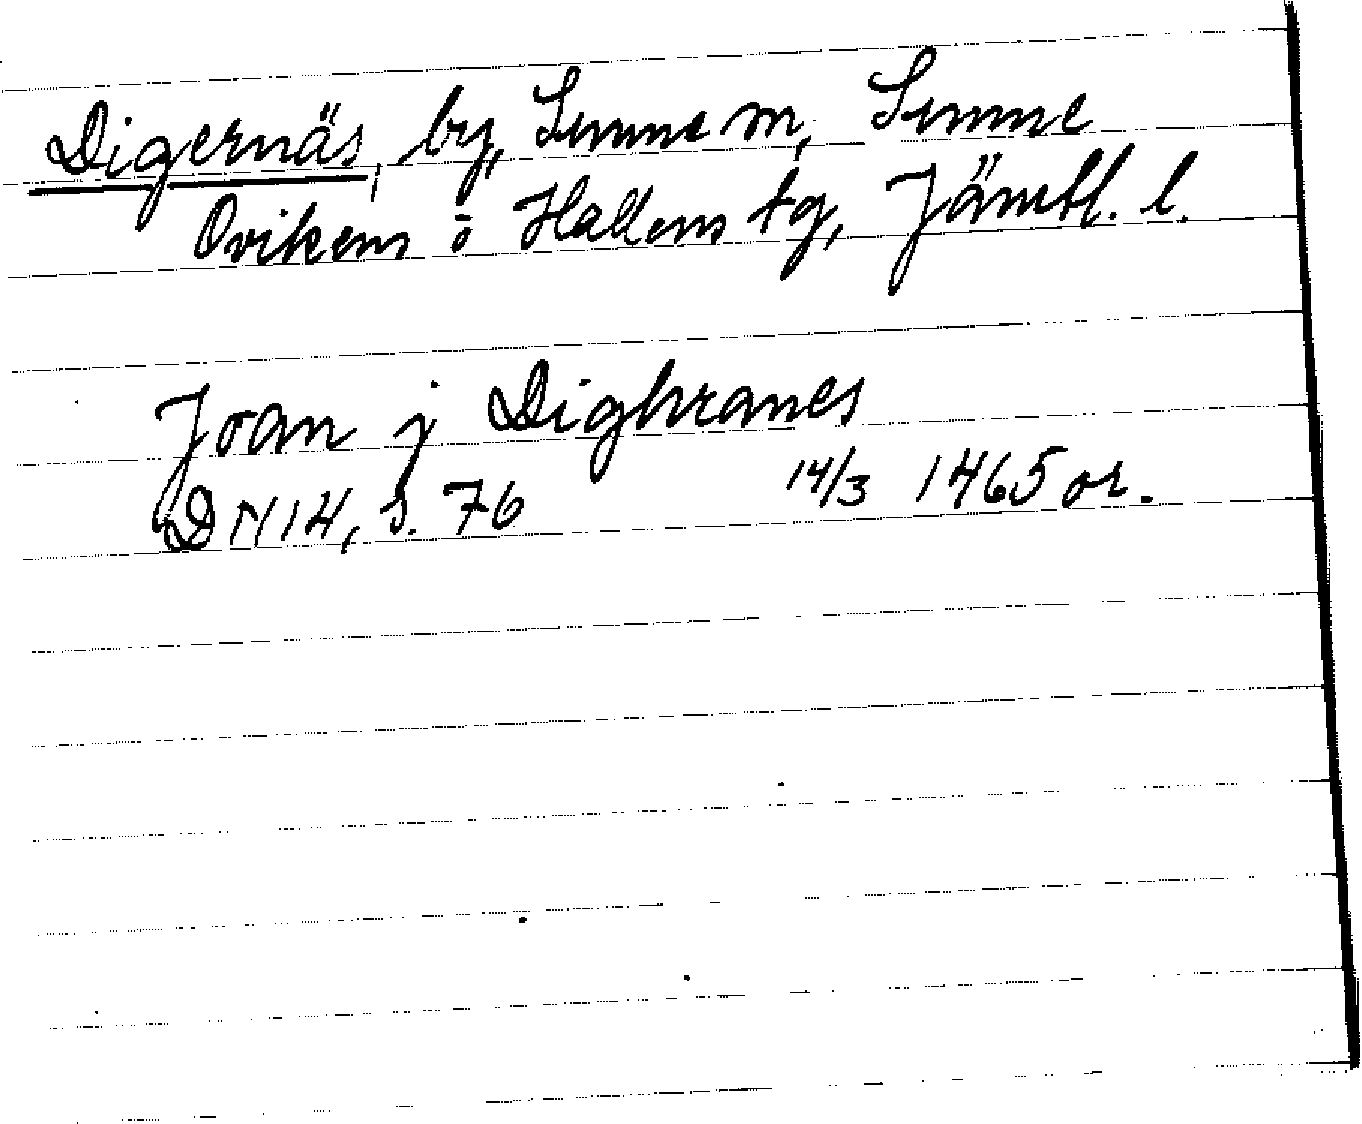 Digernäs, by, Sunne sn, Sunne
Ovikens o Hallens tg, Jämtl. l.
Joan j Dighranes
DN 14, s. 76 14/3 1465 or.